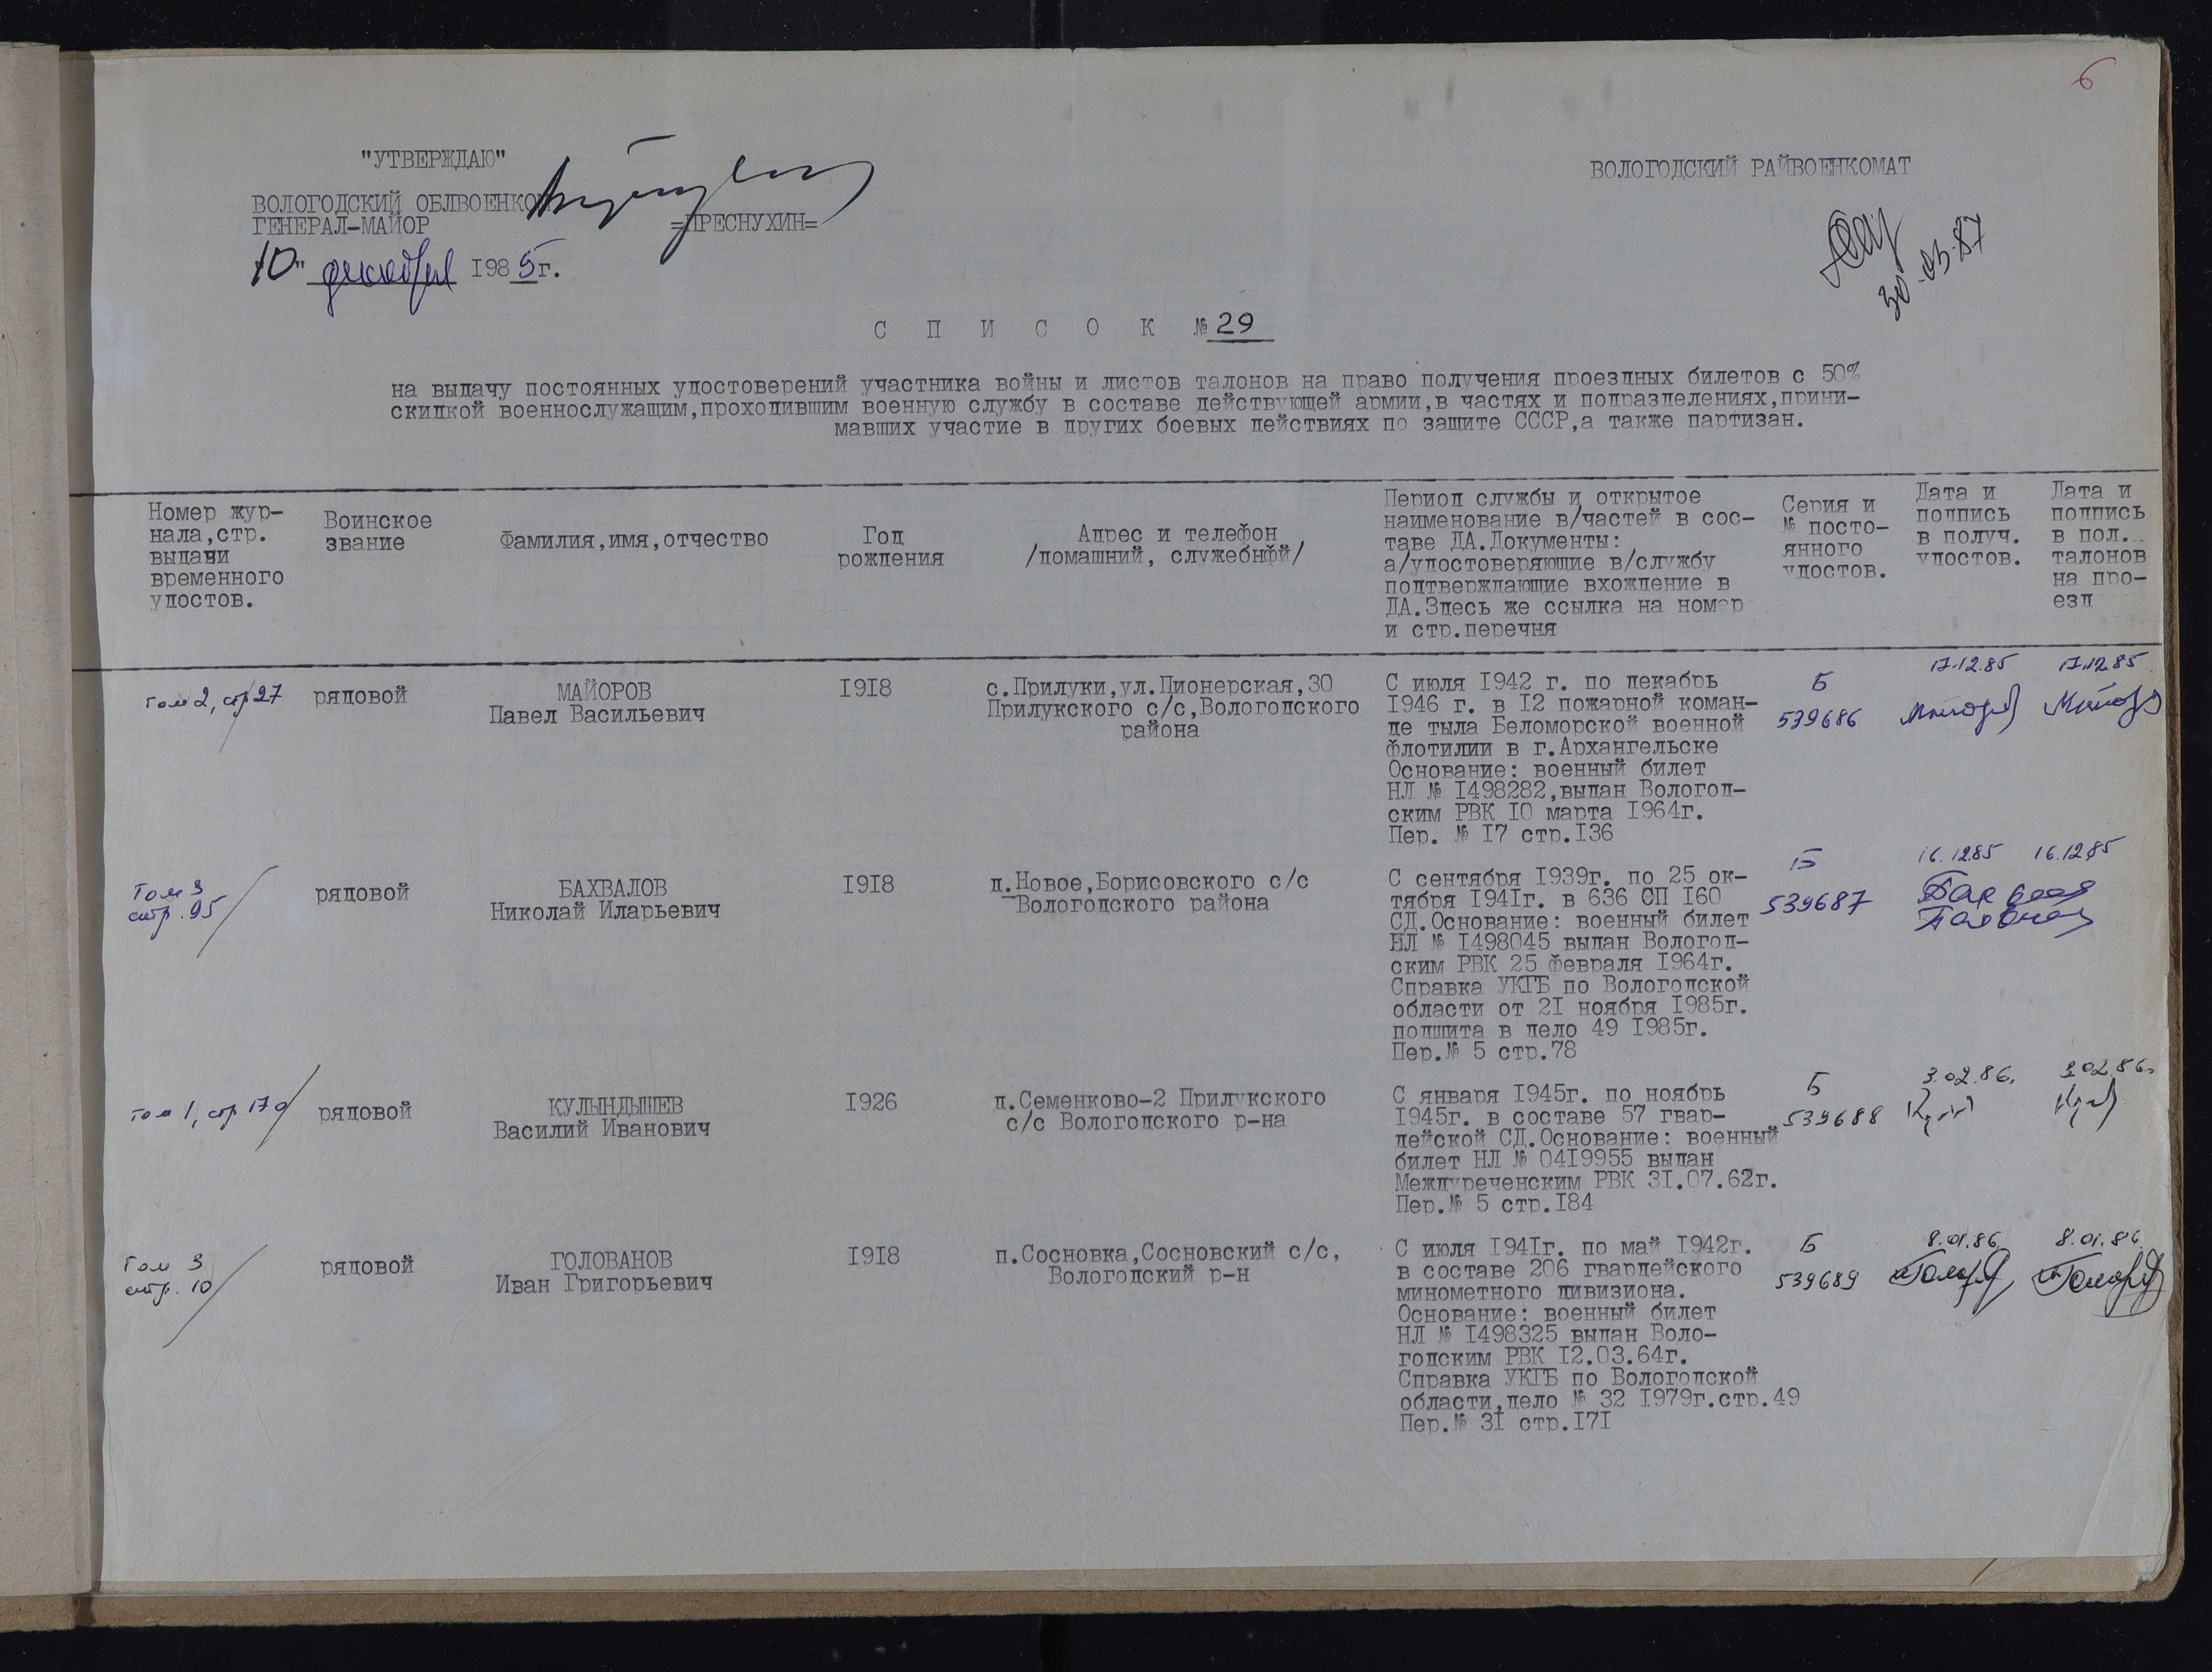 6
"УТВЕРЖДАЮ"
ВОЛОГОДСКИЙ РАЙВОЕНКОМАТ
ВОЛОГОДСКИЙ ОБЛВОЕНКО
ГЕНЕРАЛ-МАЙОР =ПРЕСНУХИН=
"10" декабря 1985г.
30.03.87
С П И С О К № 29
на выдачу постоянных удостоверений участника войны и листов талонов на право получения проездных билетов с 50%
скидкой военнослужащим,проходившим военную службу в составе действующей армии,в частях и подразделениях,прини-
мавших участие в других боевых действиях по защите СССР,а также партизан.
Номер жур-
нала,стр.
выдачи
временного
удостов.
Воинское
звание
Фамилия,имя,отчество
Год
рождения
Адрес и телефон
/домашний, служебный/
Период службы и открытое
наименование в/частей в сос-
таве ДА.Документы:
а/удостоверяющие в/службу
подтверждающие вхождение в
ДА.Здесь же ссылка на номер
и стр.перечня
Серия и
№ посто-
янного
удостов.
Дата и
подпись
в получ.
удостов.
Дата и
подпись
в пол.
талонов
на про-
езд
том 2, стр 27
рядовой
МАЙОРОВ
Павел Васильевич
1918
с.Прилуки,ул.Пионерская,30
Прилукского с/с,Вологодского
района
С июля 1942 г. по декабрь
1946 г. в 12 пожарной коман-
де тыла Беломорской военной
флотилии в г.Архангельске
Основание: военный билет
НЛ № 1498282,выдан Вологод-
ским РВК 10 марта 1964г.
Пер. № 17 стр.136
Б
539686
17.12.85
Майоров
17.12.85
Майоров
Том 3
стр. 95
рядовой
БАХВАЛОВ
Николай Иларьевич
1918
д.Новое,Борисовского с/с
Вологодского района
С сентября 1939г. по 25 ок-
тября 1941г. в 636 СП 160
СД.Основание: военный билет
НЛ № 1498045 выдан Вологод-
ским РВК 25 февраля 1964г.
Справка УКГБ по Вологодской
области от 21 ноября 1985г.
подшита в дело 49 1985г.
Пер.№ 5 стр.78
Б
539687
16.12.85 16.12.85
том 1, стр 170
рядовой
КУЛЫНДЫШЕВ
Василий Иванович
1926
д.Семенково-2 Прилукского
с/с Вологодского р-на
С января 1945г. по ноябрь
1945г. в составе 57 гвар-
дейской СД.Основание: военный
билет НЛ № 0419955 выдан
Междуреченским РВК 31.07.62г.
Пер.№ 5 стр.184
Б
539688
3.02.86.
3.02.86.
Том 3
стр. 10
рядовой
ГОЛОВАНОВ
Иван Григорьевич
1918
п.Сосновка,Сосновский с/с,
Вологодский р-н
С июля 1941г. по май 1942г.
в составе 206 гвардейского
минометного дивизиона.
Основание: военный билет
НЛ № 1498325 выдан Воло-
годским РВК 12.03.64г.
Справка УКГБ по Вологодской
области,дело № 32 1979г.стр.49
Пер.№ 31 стр.171
Б
539689
8.01.86
8.01.86